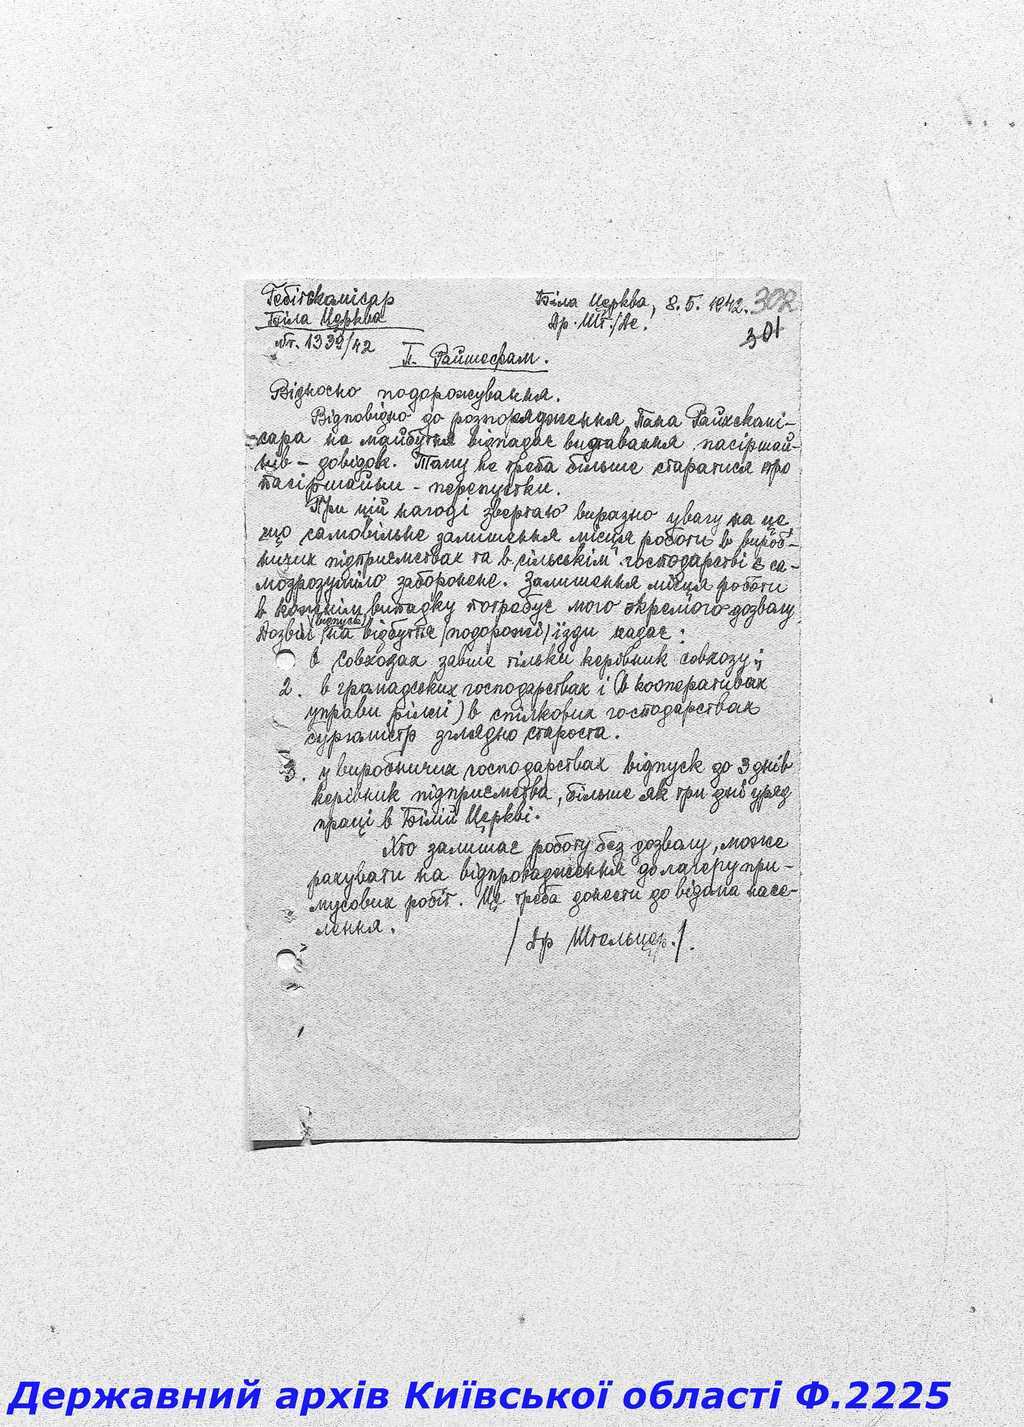 Гебітскомісар
Біла Церква
№. 1339/42
Біла Церква, 8.5.1942.
302
Др. Шт./Ле.
301
П. Райшефам.
Відносно подорожування.
Відповідно до розпорядження Пана Райхскомі-
сара на майбутнє відпадає видавання пасіршай-
нів - довідок. Тому не треба більше старатися про
пасіршайни - перепустки.
При цій нагоді звертаю виразно увагу на це,
що самовільне залишення місця роботи в вироб-
ничих підприємствах та в сільськім господарстві є са-
мозрозуміло заборонене. Залишення місця роботи
в кожнім випадку потребує мого окремого дозволу.
(відпуск)
Дозвіл на відбуття (подорожі) їзди надає:
в совхозах завше тільки керівник совхозу;
2. в громадських господарствах і (в кооперативах
управи ріллі) в спілкових господарствах
зглядно староста.
3. у виробничих господарствах відпуск до 3 днів
керівник підприємства, більше як три дні уряд
праці в Білій Церкві.
Хто залишає роботу без дозволу, може
рахувати на відпровадження до лагеру при-
мусових робіт. Це треба донести до відома насе-
лення.
/Др Штельцер./.
Державний архів Київської області Ф.2225